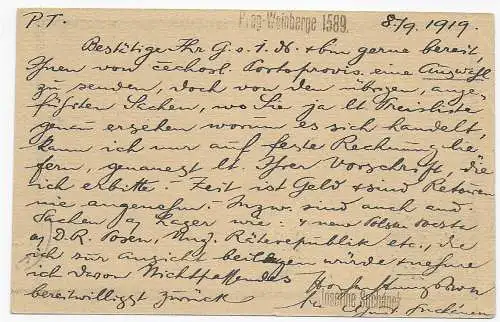 P.T. Prag-Weinberge 1589. 8./9. 1919.
Bestätige Ihr G. s. 1. ds. & bin gerne bereit,
Ihnen von čechosl. Portoprovis. eine Auswahl
zu senden, doch von den übrigen, ange-
führten Sachen, wo Sie ja lt. Preisliste
genau ersehen worum es sich handelt,
kann ich nur auf feste Rechnung lie-
fern, genauest lt. Ihrer Vorschrift, die
ich erbitte. Zeit ist Geld & sind Retouren
nie angenehm. Inzw. sind auch and.
Sachen a/ Lager wie: 4 neue Polska Poczta
a/ D.R. Posen, Ung. Räterepublik etc., die
ich zur Ansicht beilegen würde & nehme
ich davon Nichtpassendes
bereitwilligst zurück